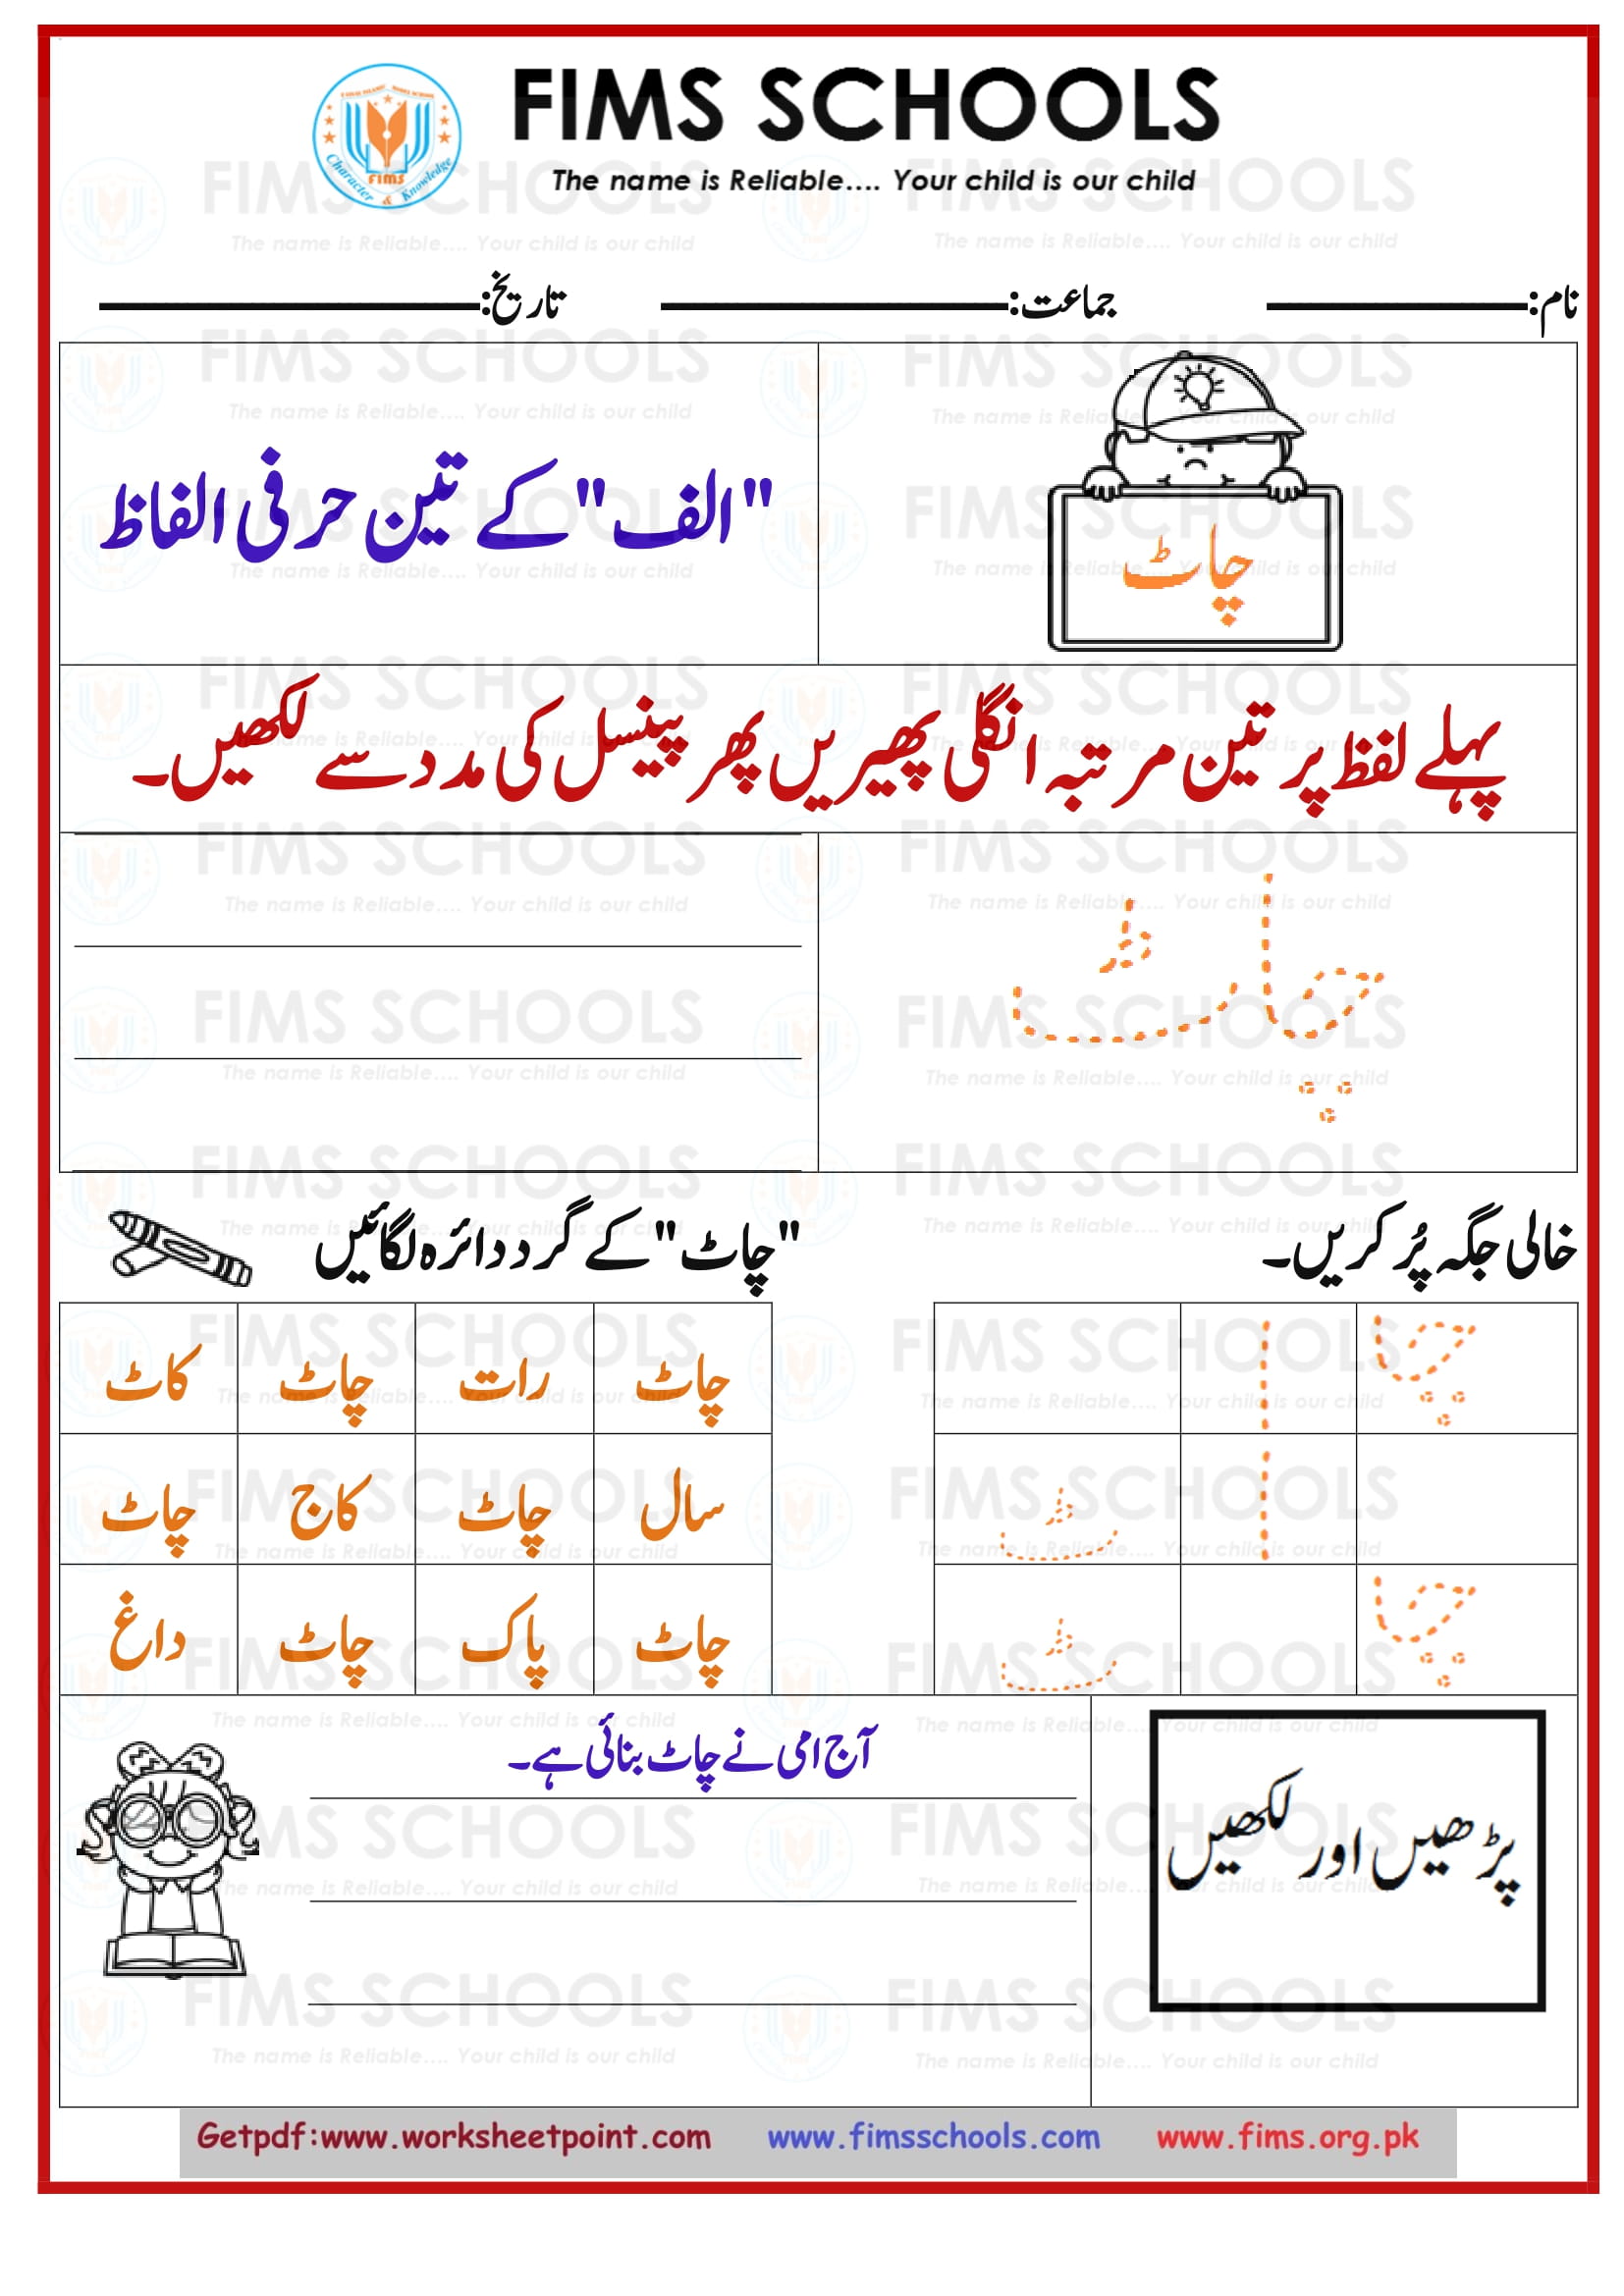 FIMS SCHOOLS
The name is Reliable.... Your child is our child
Character & Knowledge
FIMS
نام: جماعت: تاریخ:
چاٹ
"الف" کے تین حرفی الفاظ
پہلے لفظ پر تین مرتبہ انگلی پھیریں پھر پینسل کی مدد سے لکھیں۔
چاٹ
خالی جگہ پُر کریں۔
چ ا
ا ٹ
چ ٹ
"چاٹ" کے گرد دائرہ لگائیں
چاٹ رات چاٹ کاٹ
سال چاٹ کاج چاٹ
چاٹ پاک چاٹ داغ
پڑھیں اور لکھیں
آج امی نے چاٹ بنائی ہے۔
Getpdf:www.worksheetpoint.com www.fimsschools.com www.fims.org.pk